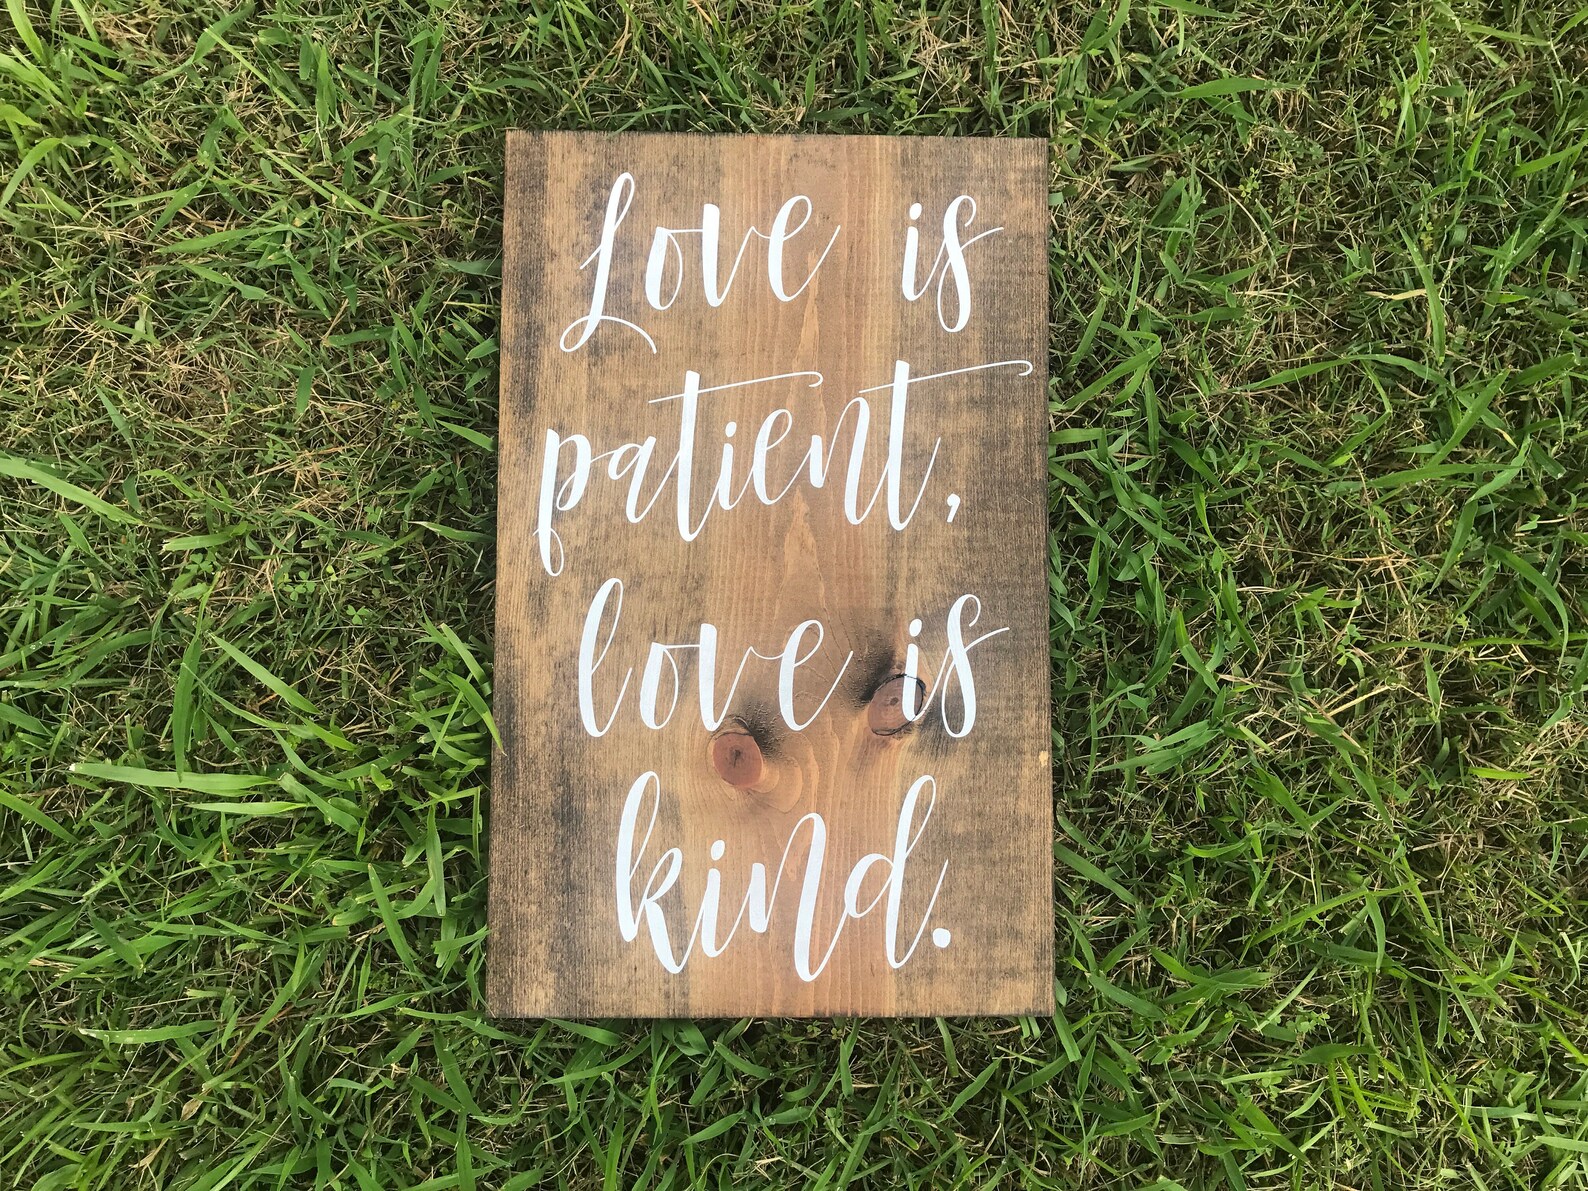 Love is
patient,
love is
kind.